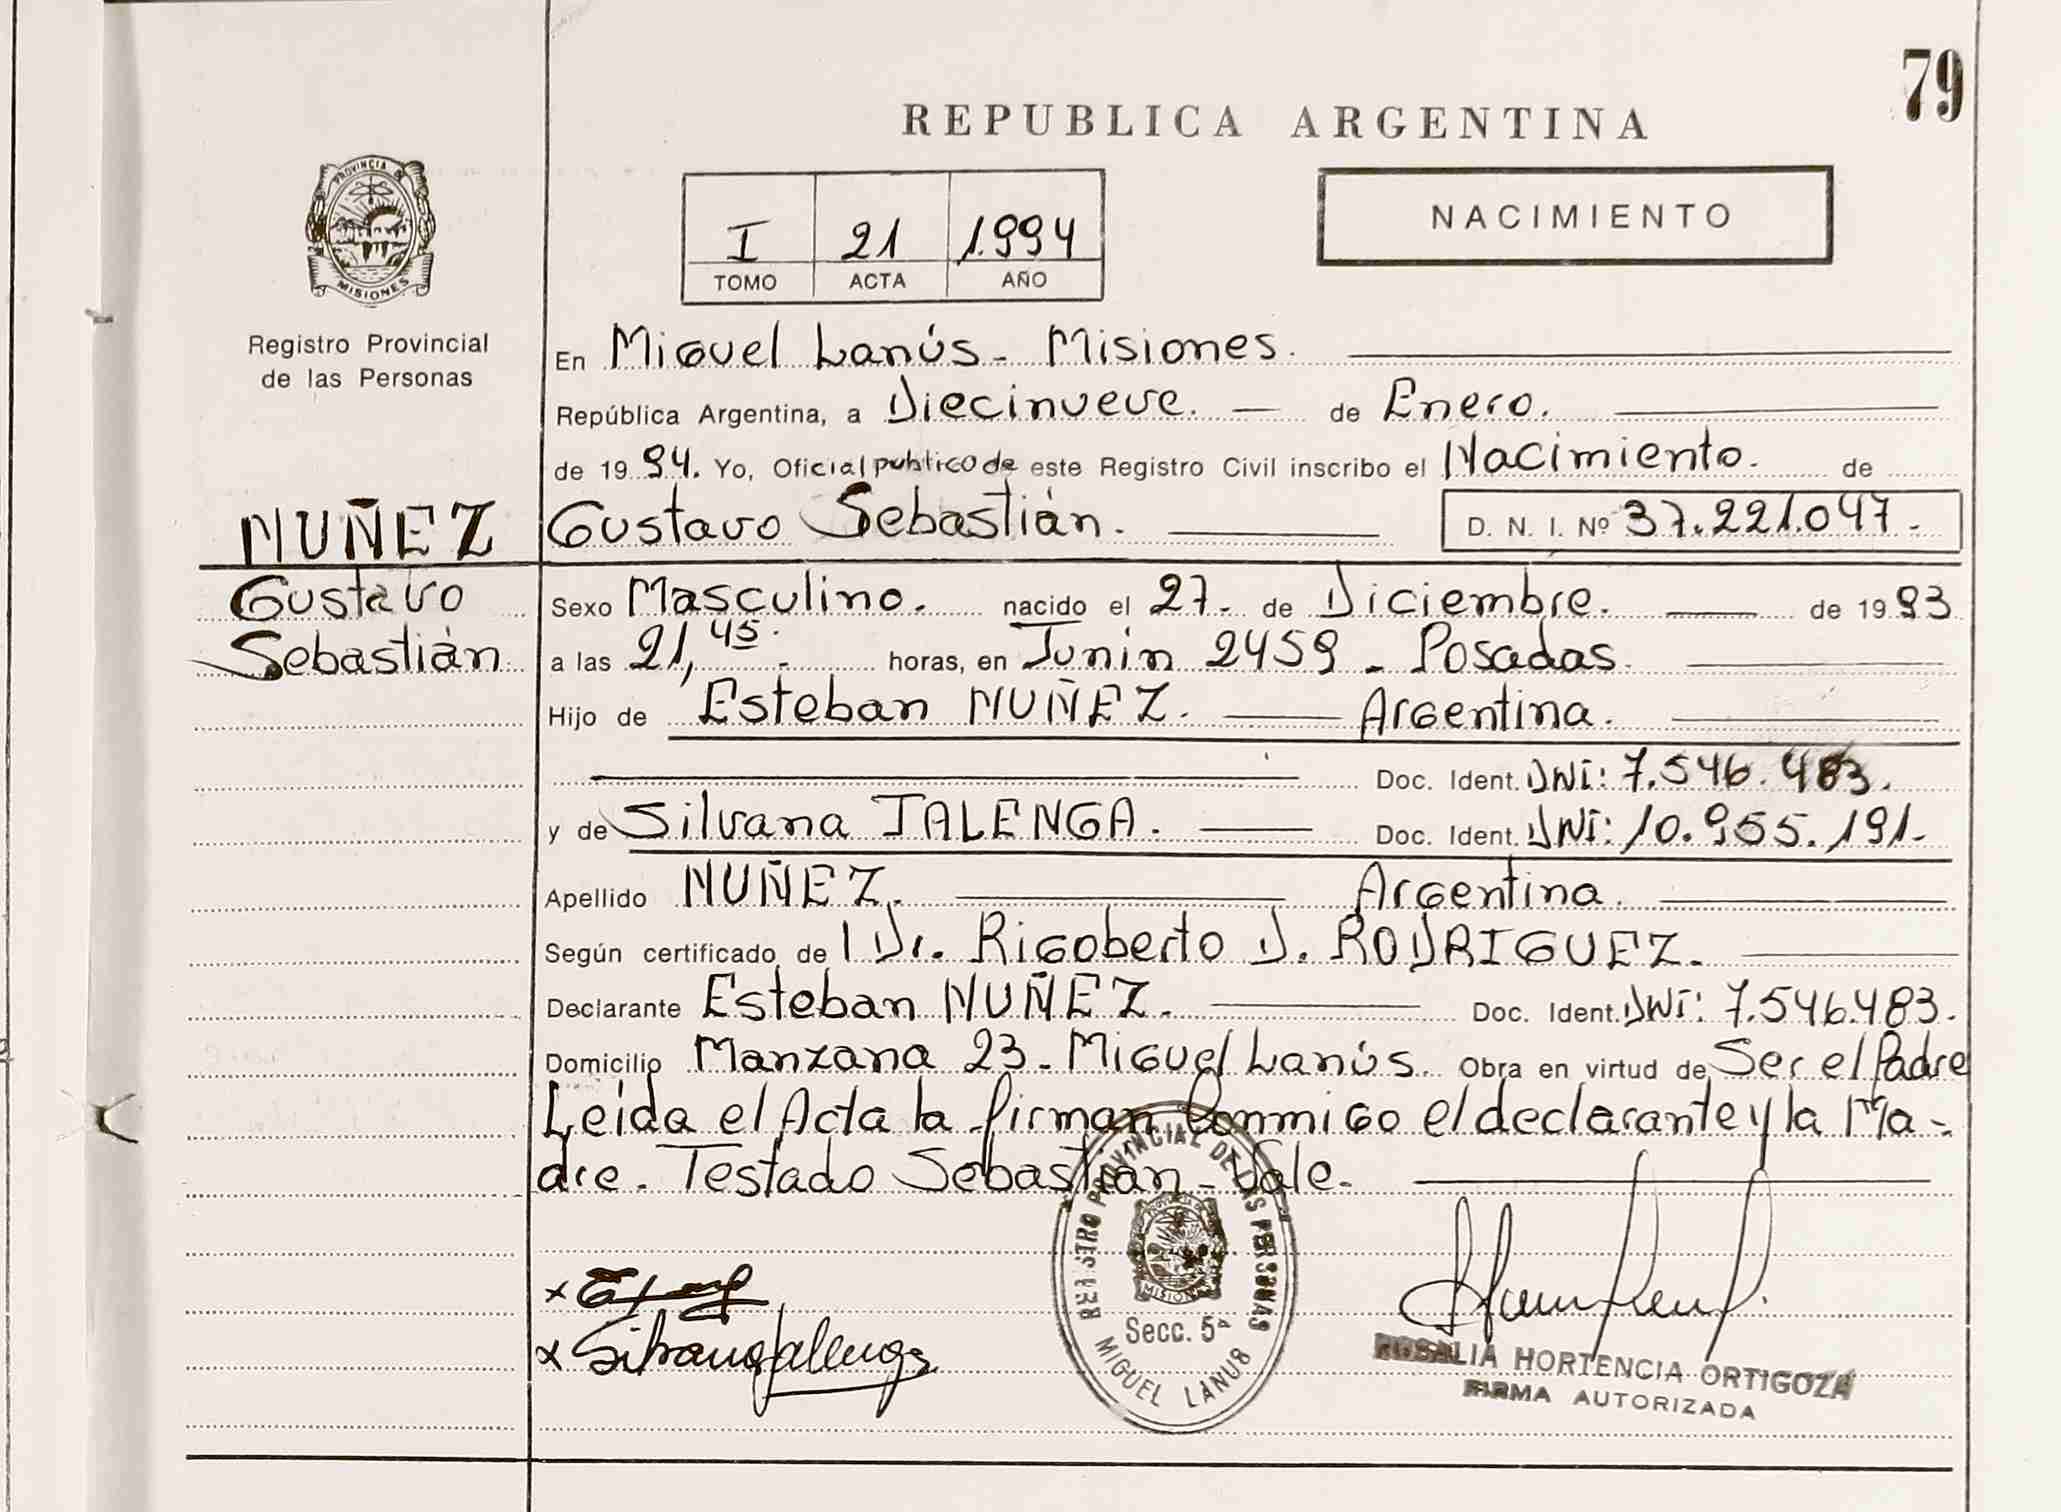 79
REPUBLICA ARGENTINA
PROVINCIA DE
MISIONES
Registro Provincial
de las Personas
I 21 1.994
TOMO ACTA AÑO
NACIMIENTO
En Miguel Lanús - Misiones.
República Argentina, a Diecinueve. de Enero.
de 1994. Yo, Oficial publico de este Registro Civil inscribo el Nacimiento. de
MUÑEZ Gustavo Sebastián. D. N. I. Nº 37.221.047.
Gustavo Sexo Masculino. nacido el 27. de Diciembre. de 1993
Sebastián a las 21,45. horas, en Junín 2459 - Posadas.
Hijo de Esteban MUÑEZ. Argentina.
Doc. Ident. DNI: 7.546.483.
y de Silvana TALENGA. Doc. Ident. DNI: 10.955.191.
Apellido MUÑEZ. Argentina.
Según certificado de l Dr. Rigoberto D. RODRIGUEZ.
Declarante Esteban MUÑEZ. Doc. Ident. DNI: 7.546.483.
Domicilio Manzana 23 - Miguel Lanús. Obra en virtud de Ser el Padre
Leída el Acta la firman Conmigo el declarante y la Ma-
dre. Testado Sebastian - Vale.
REGISTRO PROVINCIAL DE LAS PERSONAS
MISIONES
Secc. 5ª
MIGUEL LANUS
x
x Silvana Jalenga
ROSALIA HORTENCIA ORTIGOZA
FIRMA AUTORIZADA